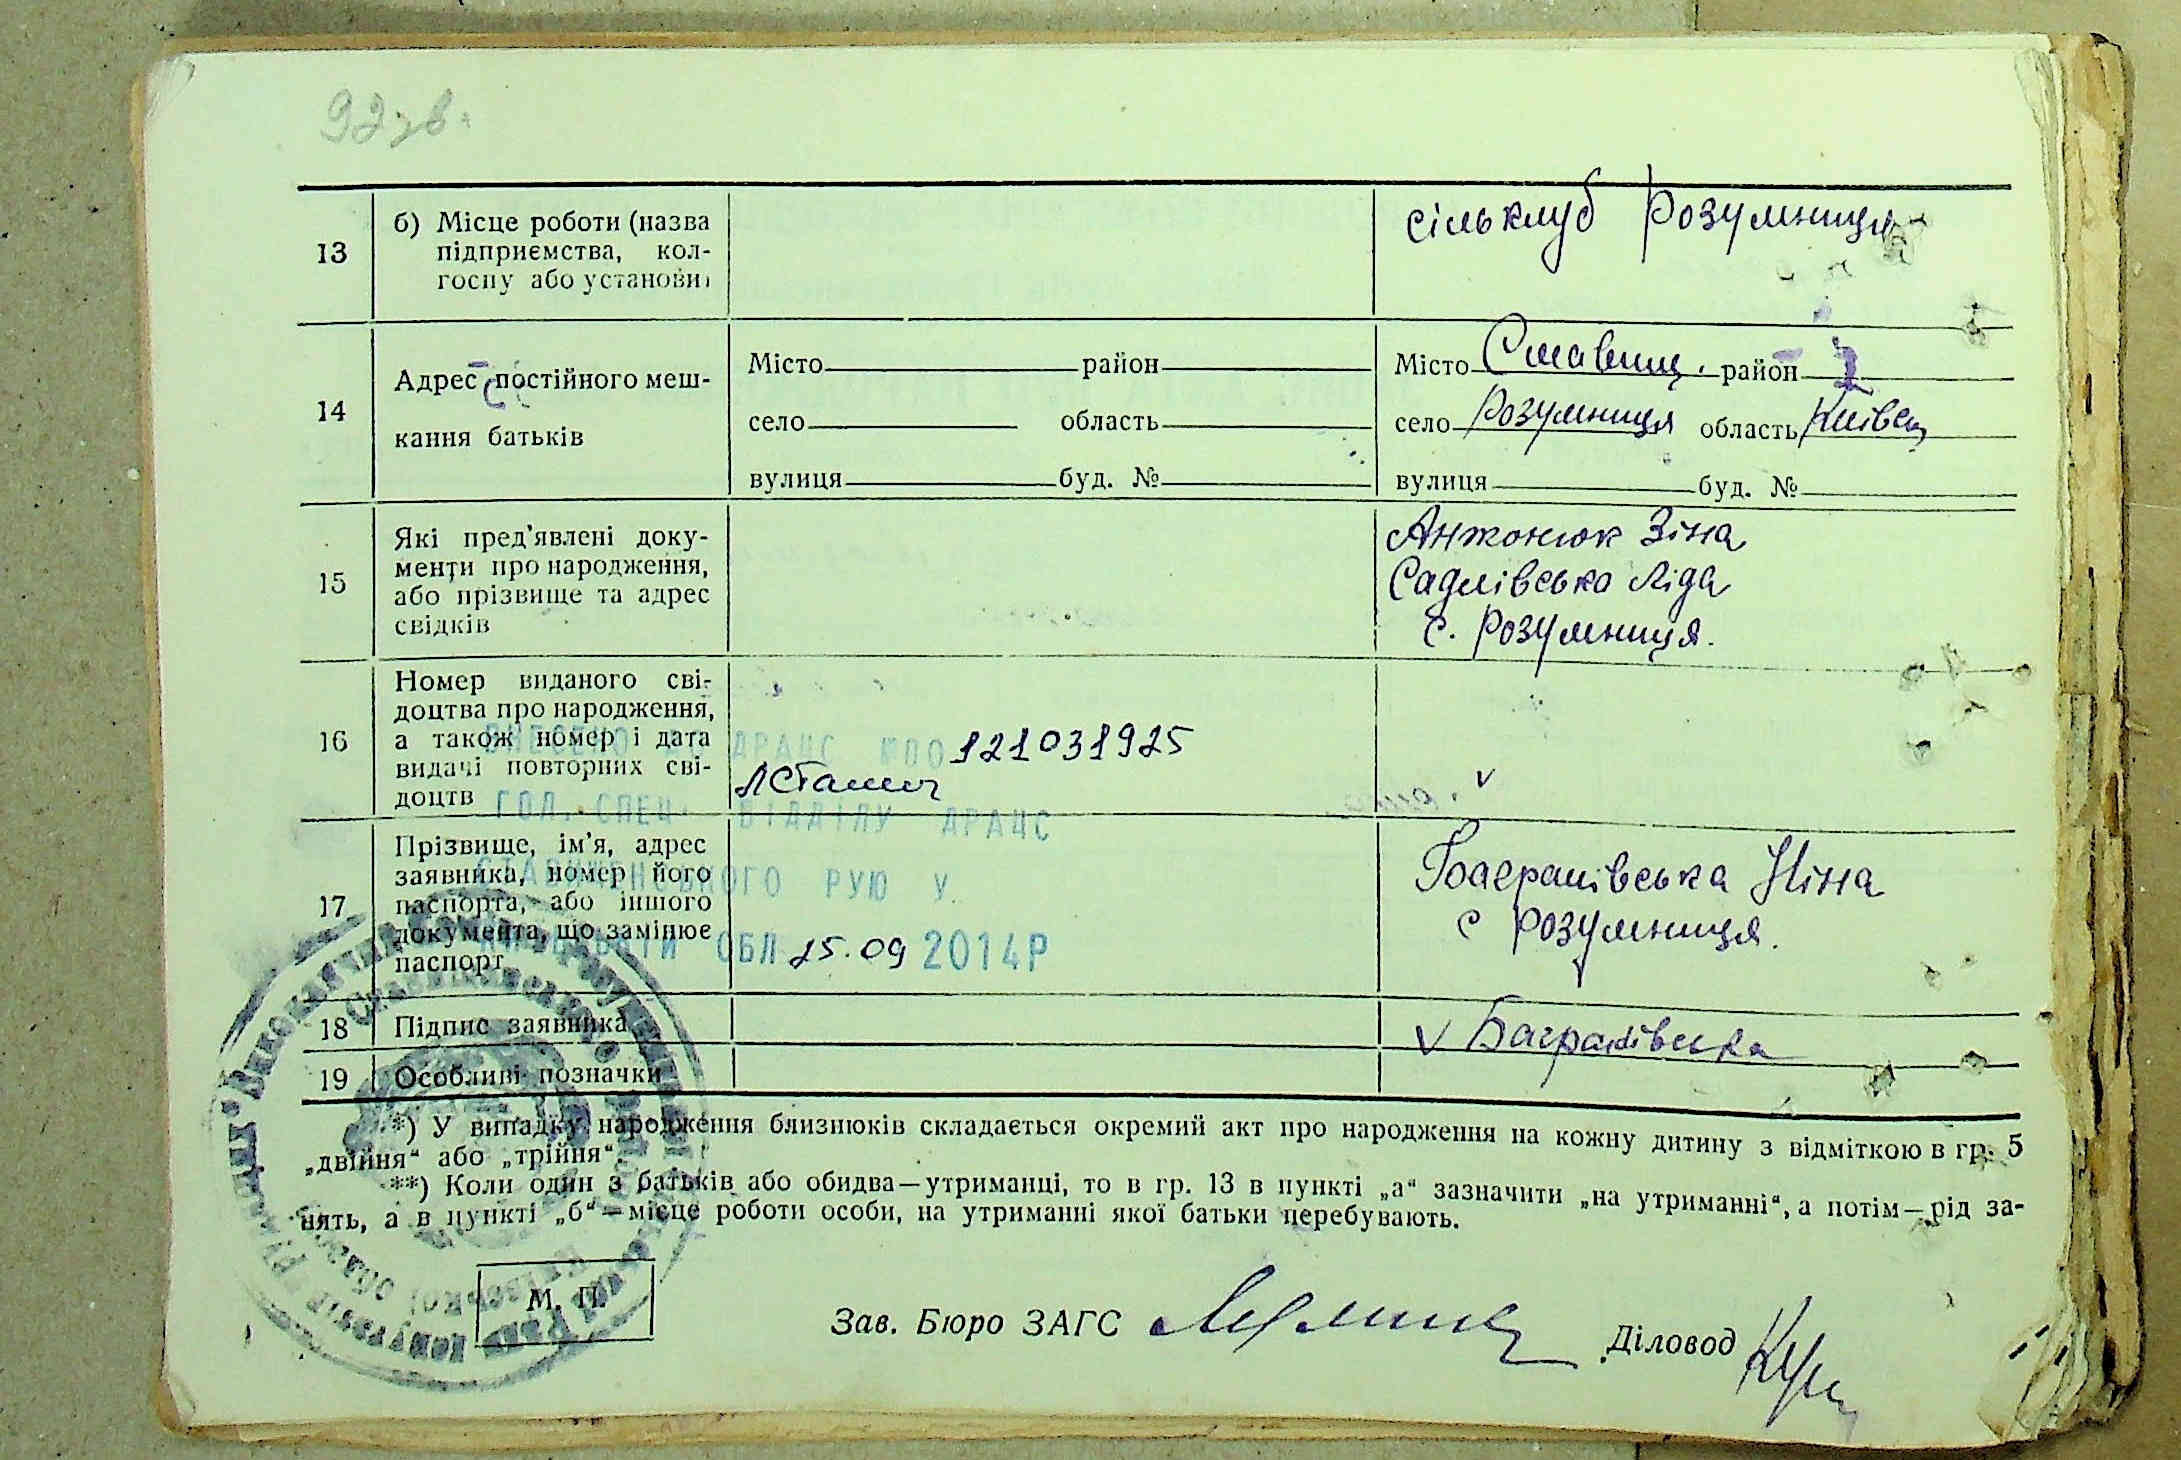 92 зв.
13
б) Місце роботи (назва
підприємства, кол-
госпу або установи)
сільклуб Розумниця
14
Адрес постійного меш-
кання батьків
Місто район
село область
вулиця буд. №
Місто Ставищ. район
село Розумниця область Київськ
вулиця буд. №
15
Які пред'явлені доку-
менти про народження,
або прізвище та адрес
свідків
Антонюк Зіна
Садлівська Ліда
с. Розумниця.
16
Номер виданого сві-
доцтва про народження,
а також номер і дата
видачі повторних сві-
доцтв
ВНЕСЕНО ДО ДРАЦС №00 121031925
ГОЛ. СПЕЦ. ВІДДІЛУ ДРАЦС
СТАВИЩЕНСЬКОГО РУЮ У
КИЇВСЬКІЙ ОБЛ 25.09 2014Р
v
17
Прізвище, ім'я, адрес
заявника, номер його
паспорта, або іншого
документа, що замінює
паспорт
Ніна
с Розумниця.
18
Підпис заявника
v
19
Особливі позначки
*) У випадку народження близнюків складається окремий акт про народження на кожну дитину з відміткою в гр. 5
„двійня“ або „трійня“.
**) Коли один з батьків або обидва—утриманці, то в гр. 13 в пункті „а“ зазначити „на утриманні“, а потім—рід за-
нять, а в пункті „б“—місце роботи особи, на утриманні якої батьки перебувають.
М. П.
Зав. Бюро ЗАГС
Діловод